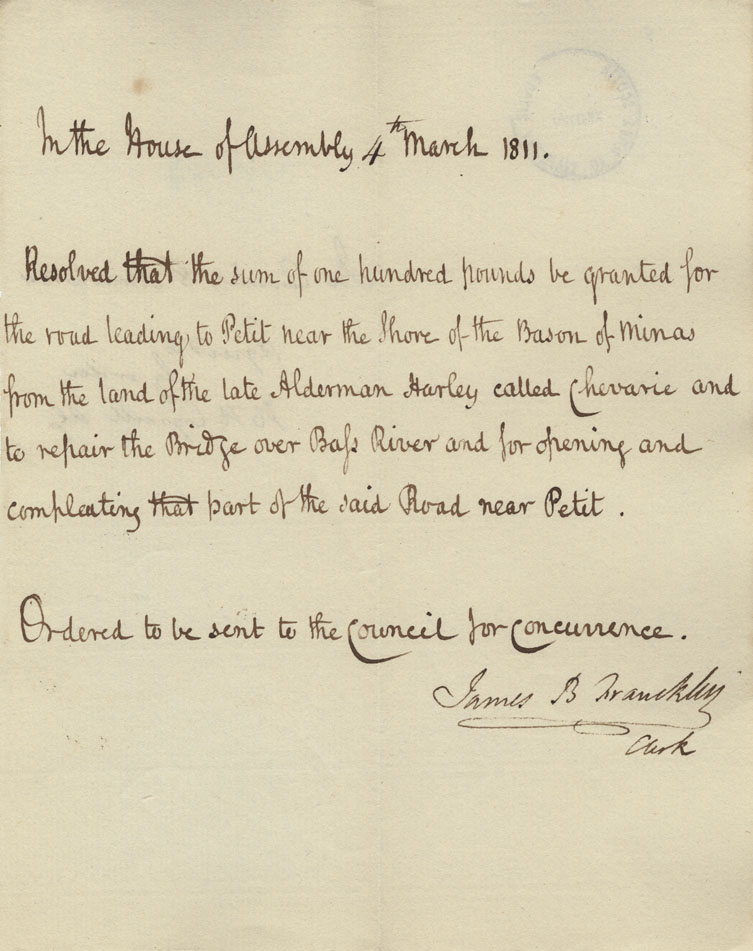 In the House of Assembly 4th March 1811.
Resolved that the sum of one hundred pounds be granted for
the road leading to Petit near the Shore of the Bason of Minas
from the land of the late Alderman Harley called Chevarie and
to repair the Bridge over Bass River and for opening and
compleating that part of the said Road near Petit.
Ordered to be sent to the Council for concurrence.
James B Francklin
Clerk